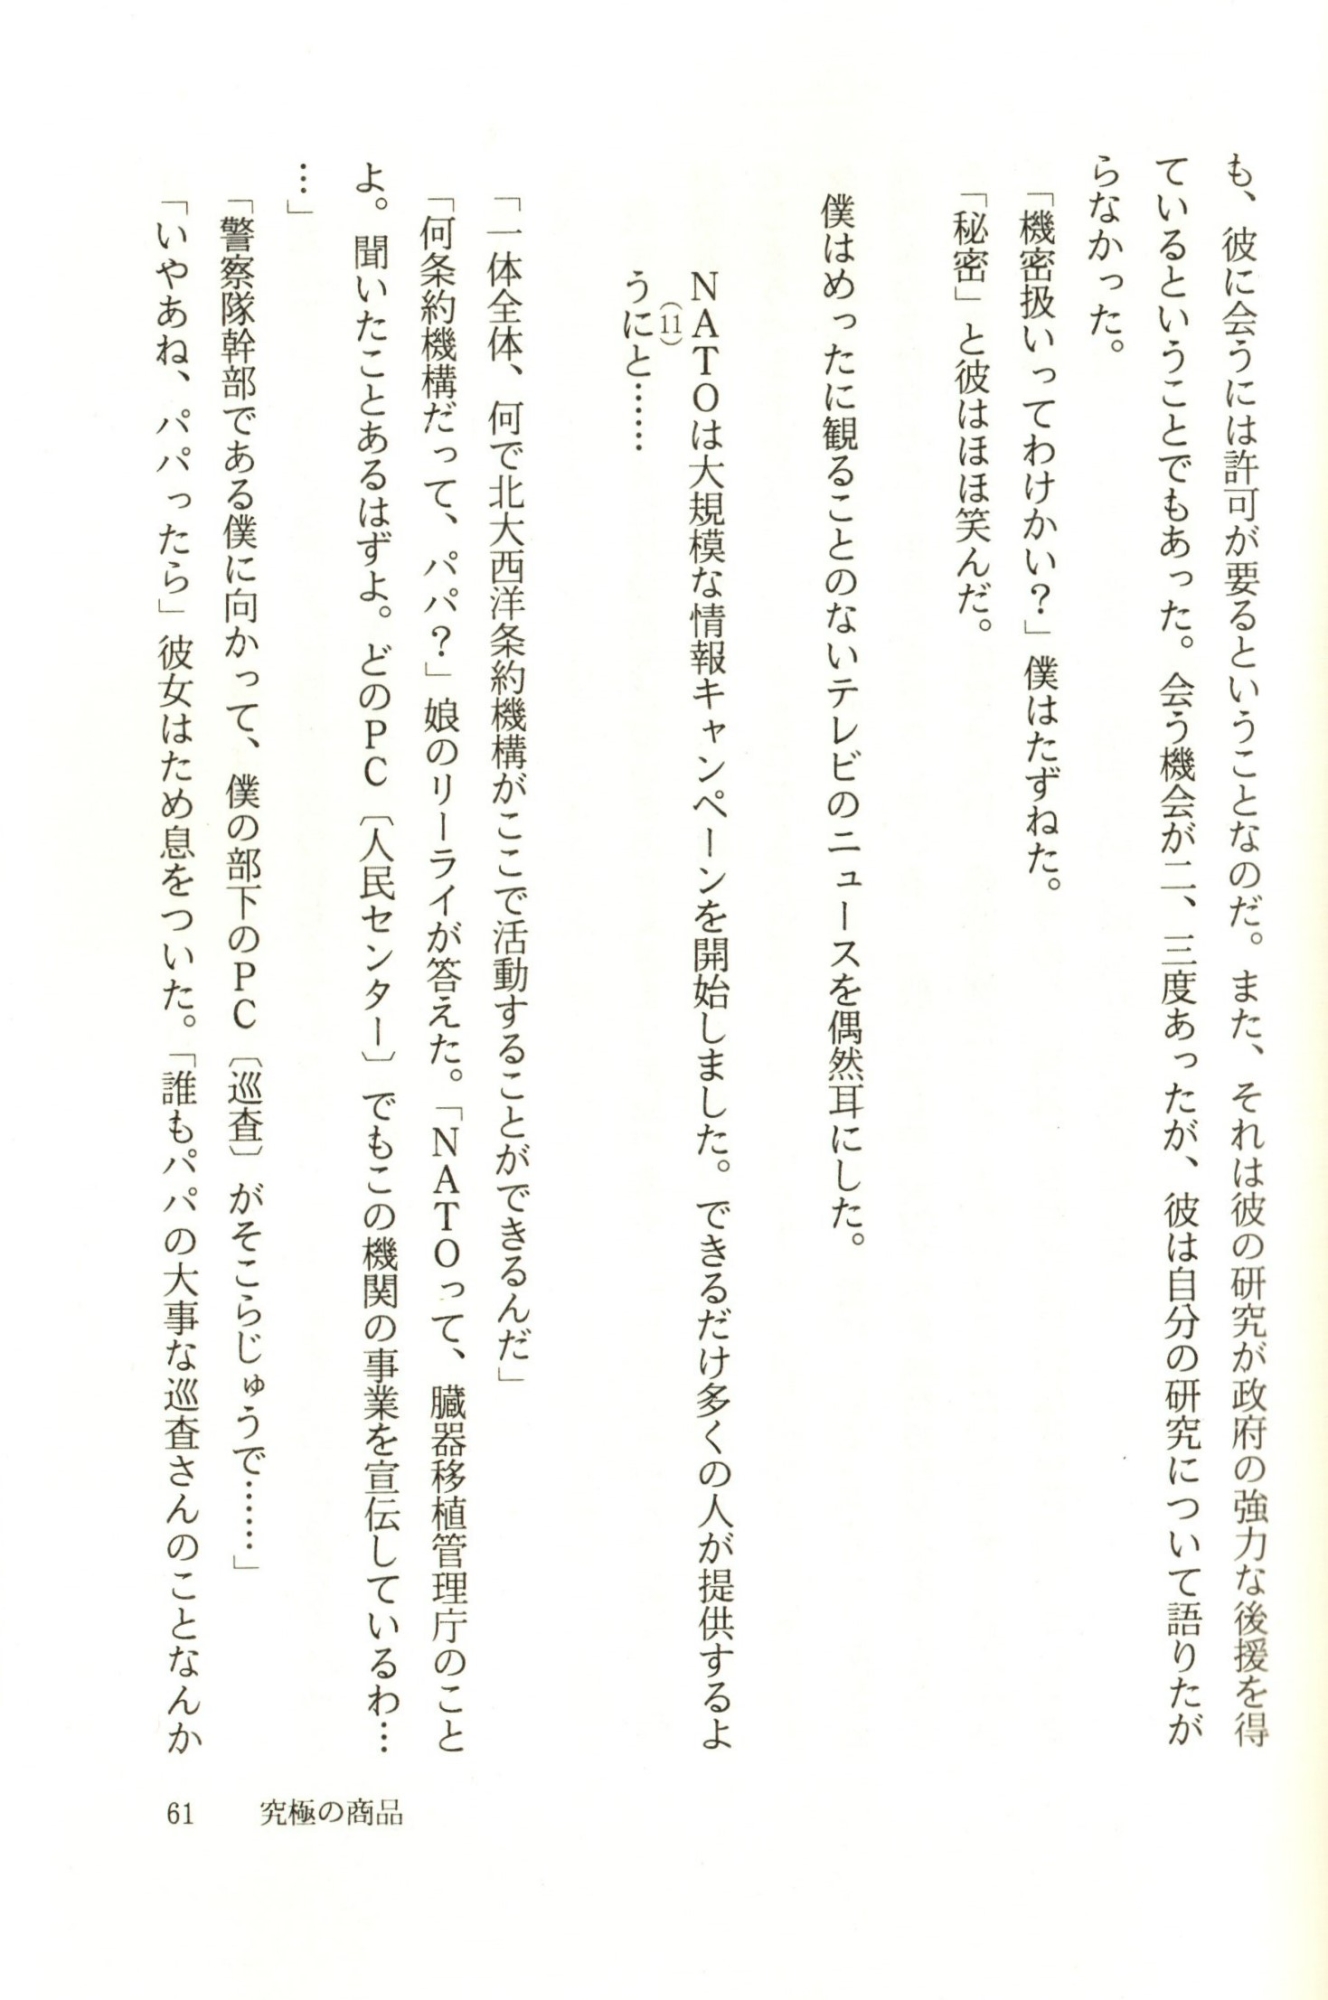 も、彼に会うには許可が要るということなのだ。また、それは彼の研究が政府の強力な後援を得
ているということでもあった。会う機会が二、三度あったが、彼は自分の研究について語りたが
らなかった。
「機密扱いってわけかい？」僕はたずねた。
「秘密」と彼はほほ笑んだ。
僕はめったに観ることのないテレビのニュースを偶然耳にした。
NATOは大規模な情報キャンペーンを開始しました。できるだけ多くの人が提供するよ
(11)
うにと……
「一体全体、何で北大西洋条約機構がここで活動することができるんだ」
「何条約機構だって、パパ？」娘のリーライが答えた。「NATOって、臓器移植管理庁のこと
よ。聞いたことあるはずよ。どのPC〔人民センター〕でもこの機関の事業を宣伝しているわ…
…」
「警察隊幹部である僕に向かって、僕の部下のPC〔巡査〕がそこらじゅうで……」
「いやあね、パパったら」彼女はため息をついた。「誰もパパの大事な巡査さんのことなんか
61 究極の商品